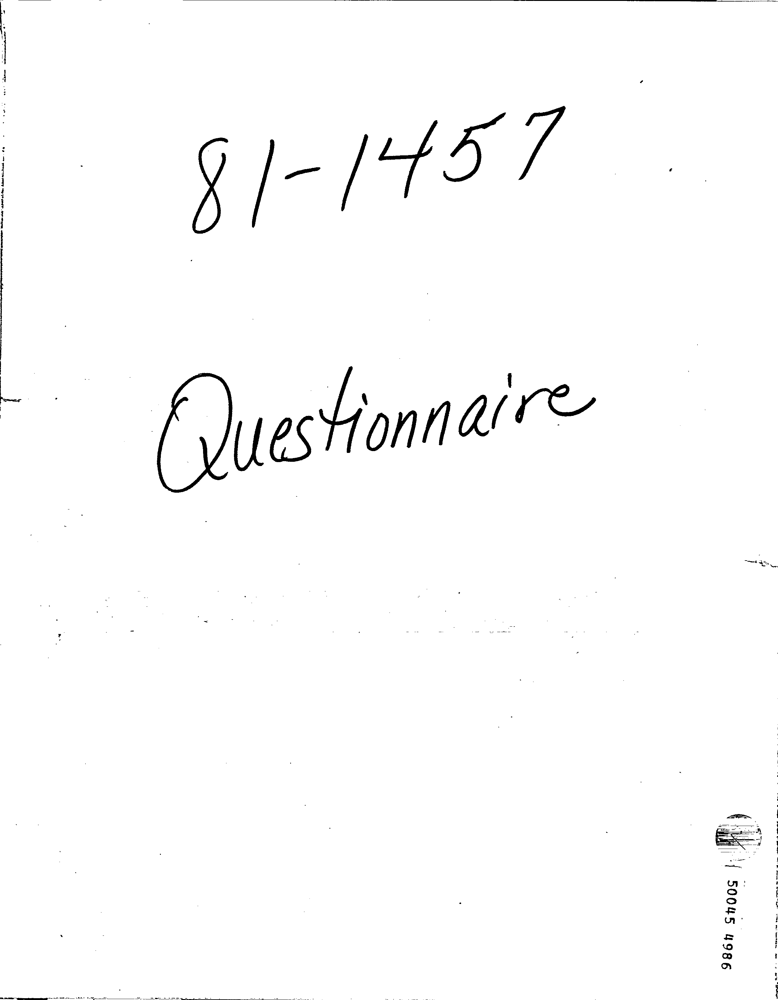 81-1457
Questionnaire
50045 4986